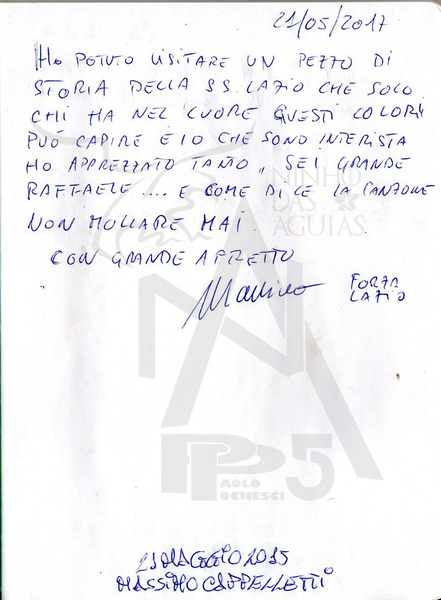 21/05/2017
HO POTUTO VISITARE UN PEZZO DI
STORIA DELLA SS. LAZIO CHE SOLO
CHI HA NEL CUORE QUESTI COLORI
PUÓ CAPIRE E IO CHE SONO INTERISTA
HO APPREZZATO TANTO, SEI GRANDE
RAFFAELE .... E COME DICE LA CANZONE
NON MOLLARE MAI
NINHO
DAS
AGUIAS
CON GRANDE AFFETTO
Massimo
FORZA
LAZIO
PP5
PAOLO
POCHESCI
21 MAGGIO 2015
MASSIMO CAPPELLETTI